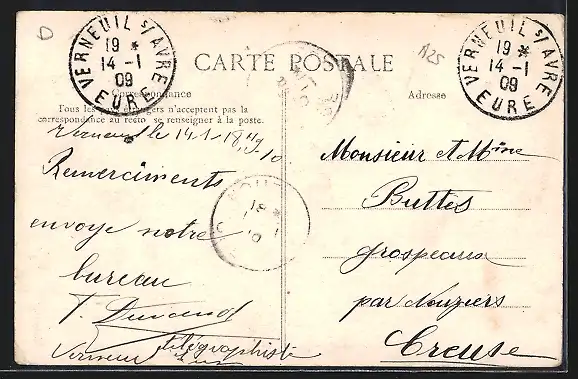 D
VERNEUIL S/AVRE
19 *
14 -1
09
EURE
CARTE POSTALE
A25
VERNEUIL S/AVRE
19 *
14 -1
09
EURE
Correspondance
Adresse
Tous les pays étrangers n'acceptent pas la
correspondance au recto se renseigner à la poste.
le 14-1-
Monsieur et Mme
Remerciments
Buttes
envoye notre
grospeaux
bureau
par Nouziers
T. Durand
Creuse
télégraphiste